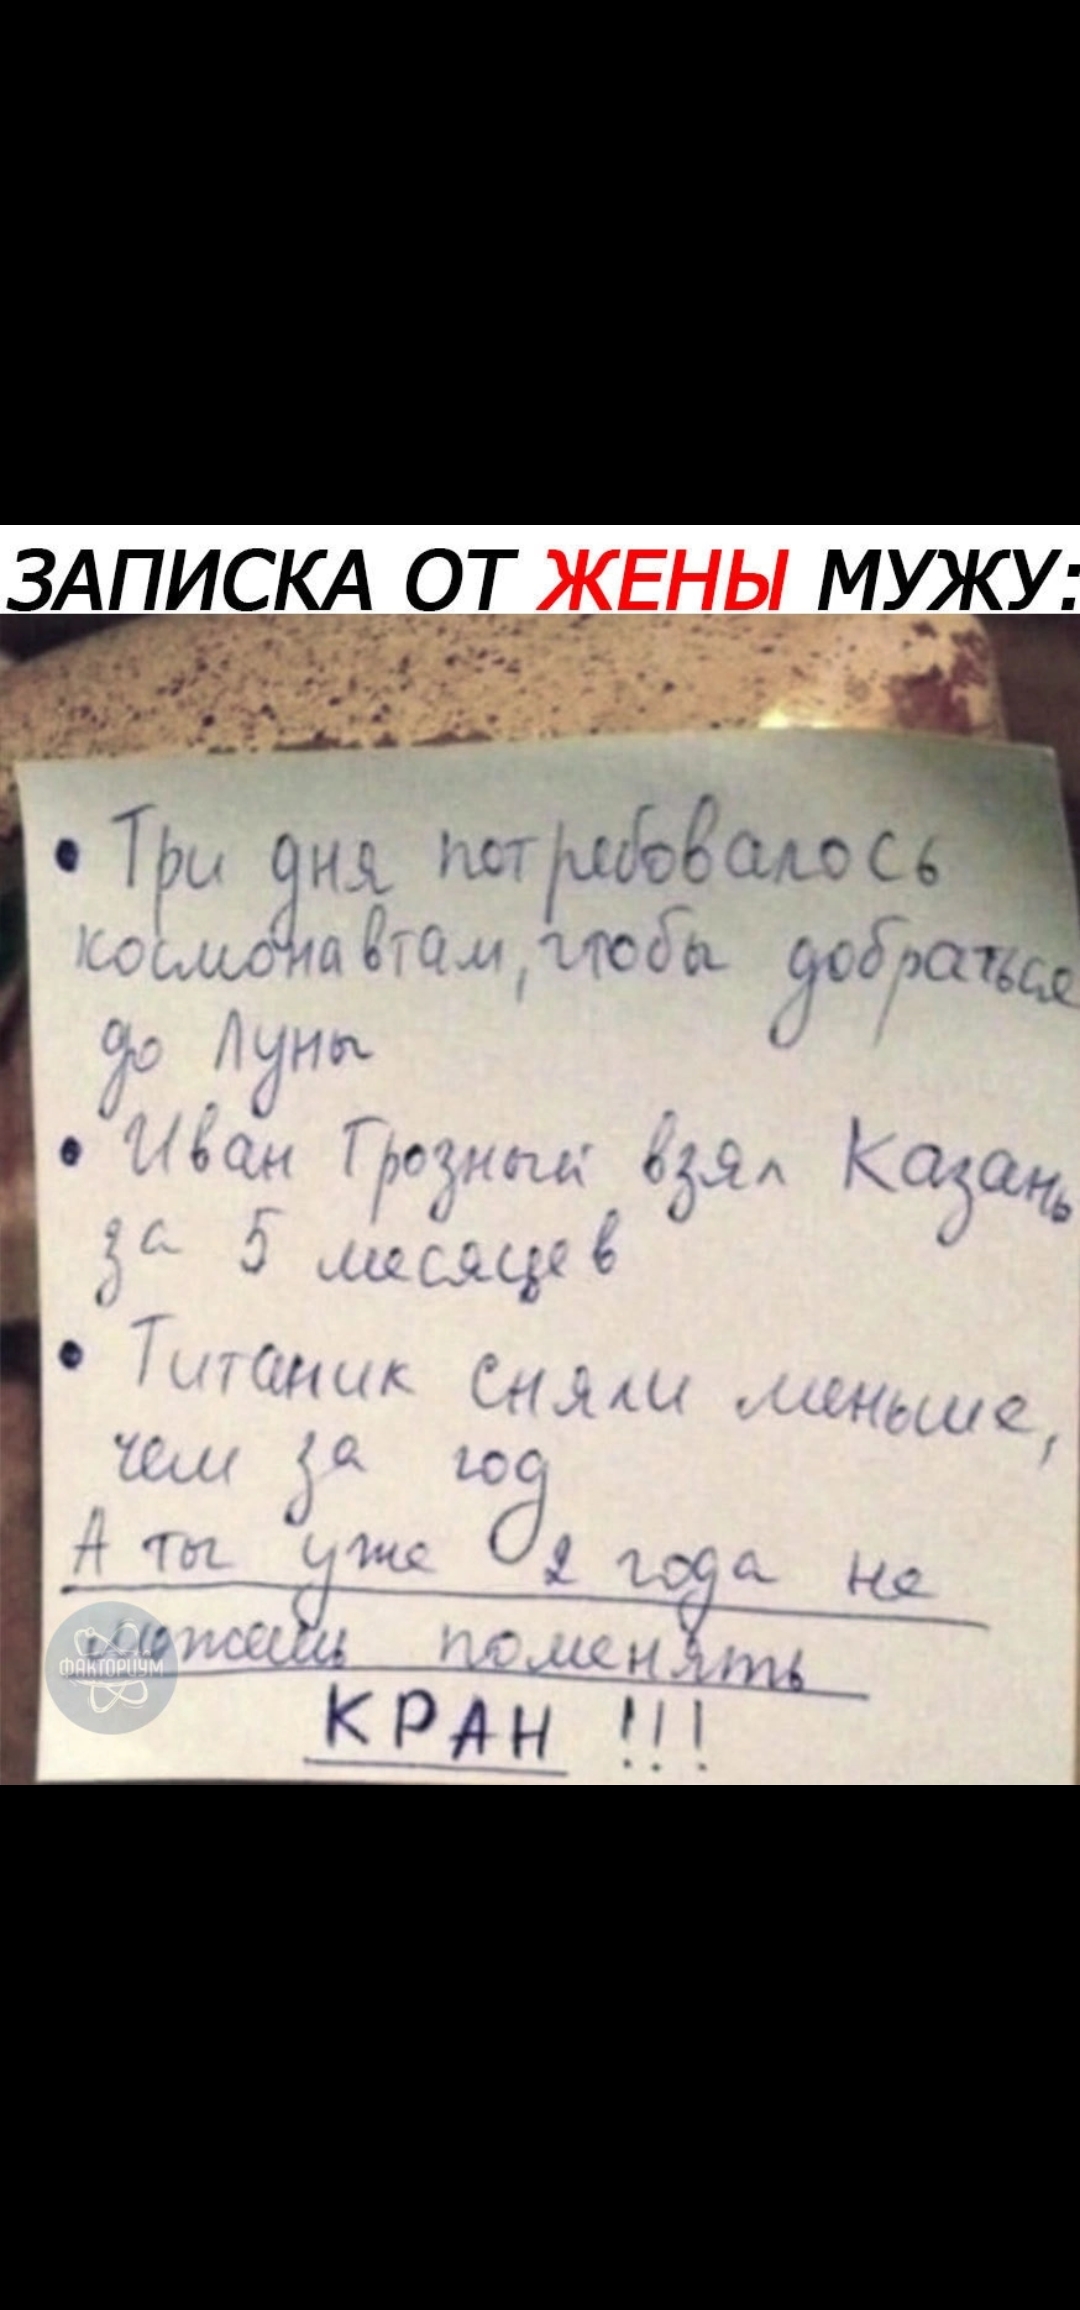 ЗАПИСКА ОТ ЖЕНЫ МУЖУ:
• Три дня потребовалось
космонавтам, чтобы добраться
до Луны
• Иван Грозный взял Казань
за 5 месяцев
• Титаник сняли меньше,
чем за год
А ты уже 2 года не
можешь поменять
КРАН !!!
ФАКТОРИУМ